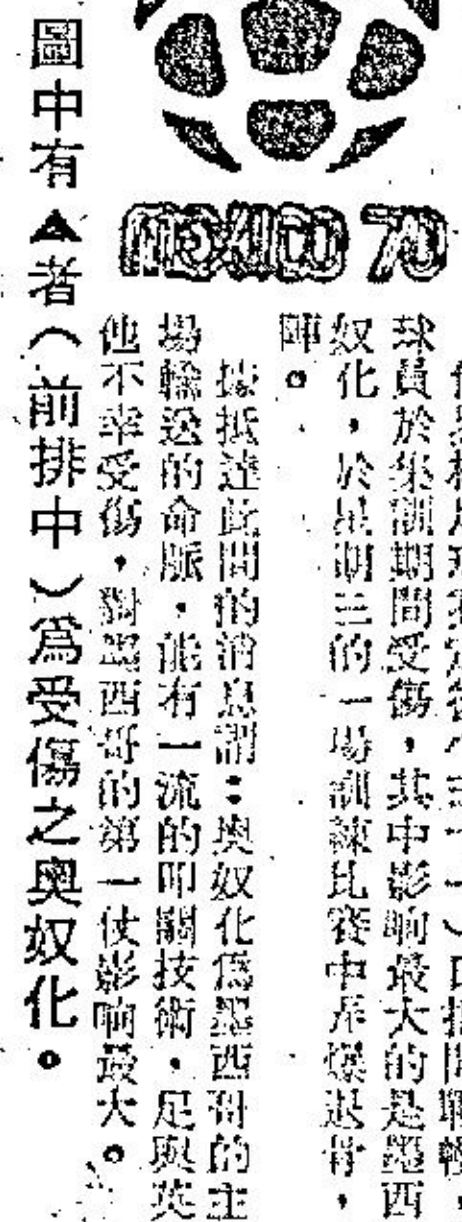 MEXICO 70
球員於集訓期間受傷，其中影响最大的是墨西
奴化，於星期三的一場訓練比賽中弄爆骨，
陣。
據抵達此間的消息謂：奧奴化爲墨西哥的主
場輸送的命脈，能有一流的叩關技術，足與英
他不幸受傷，對墨西哥的第一仗影响最大。
圖中有▲者（前排中）爲受傷之奧奴化。